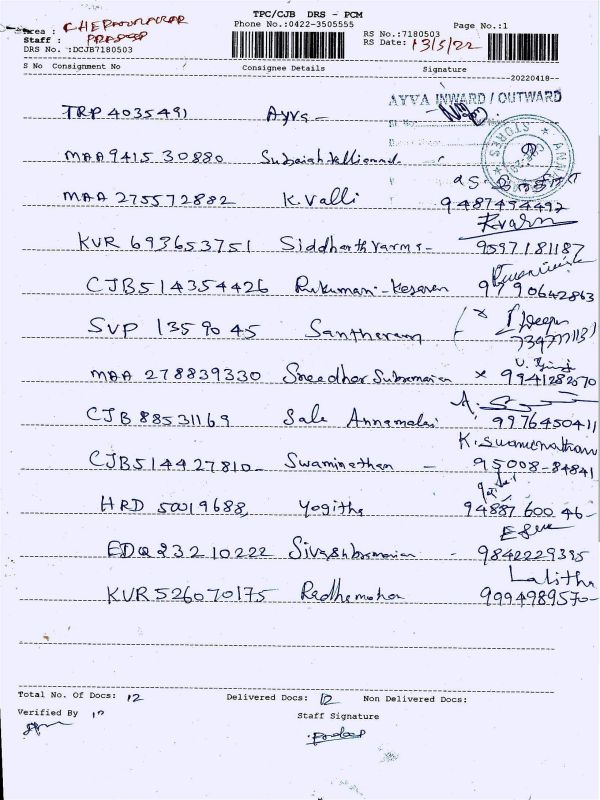 TPC/CJB DRS - PCM
Phone No.:0422-3505555 Page No.:1
Area :
Staff : RS No.:7180503
DRS No. :DCJB7180503 RS Date: 13/5/22
S No Consignment No Consignee Details Signature
20220418
AYVA INWARD / OUTWARD
STORES
TRP 4035491 Ayva -
MAA 9415 30880
MAA 275572882 K. Valli 9487454492
KVR 693653751 Siddharth Varma - 9597181187
CJB514354426 Rukumani - Kesaven 9790642863
SVP 1359045 Santheram
MAA 278839330 Sreedhar Subramanian x 9941282570
CJB 88531169 Sale Annamalai 9976450411
K. Swaminathan
CJB514427810 - Swaminethan - 95008-84841
HRD 50019688 Yogitha 94887 600 46 -
EDQ 23210222 Sivasubramanian - 9842229395
Lalitha
KVR 526070175 Radhemohan 9994989570 -
Total No. Of Docs: 12 Delivered Docs: 12 Non Delivered Docs:
Verified By
Staff Signature